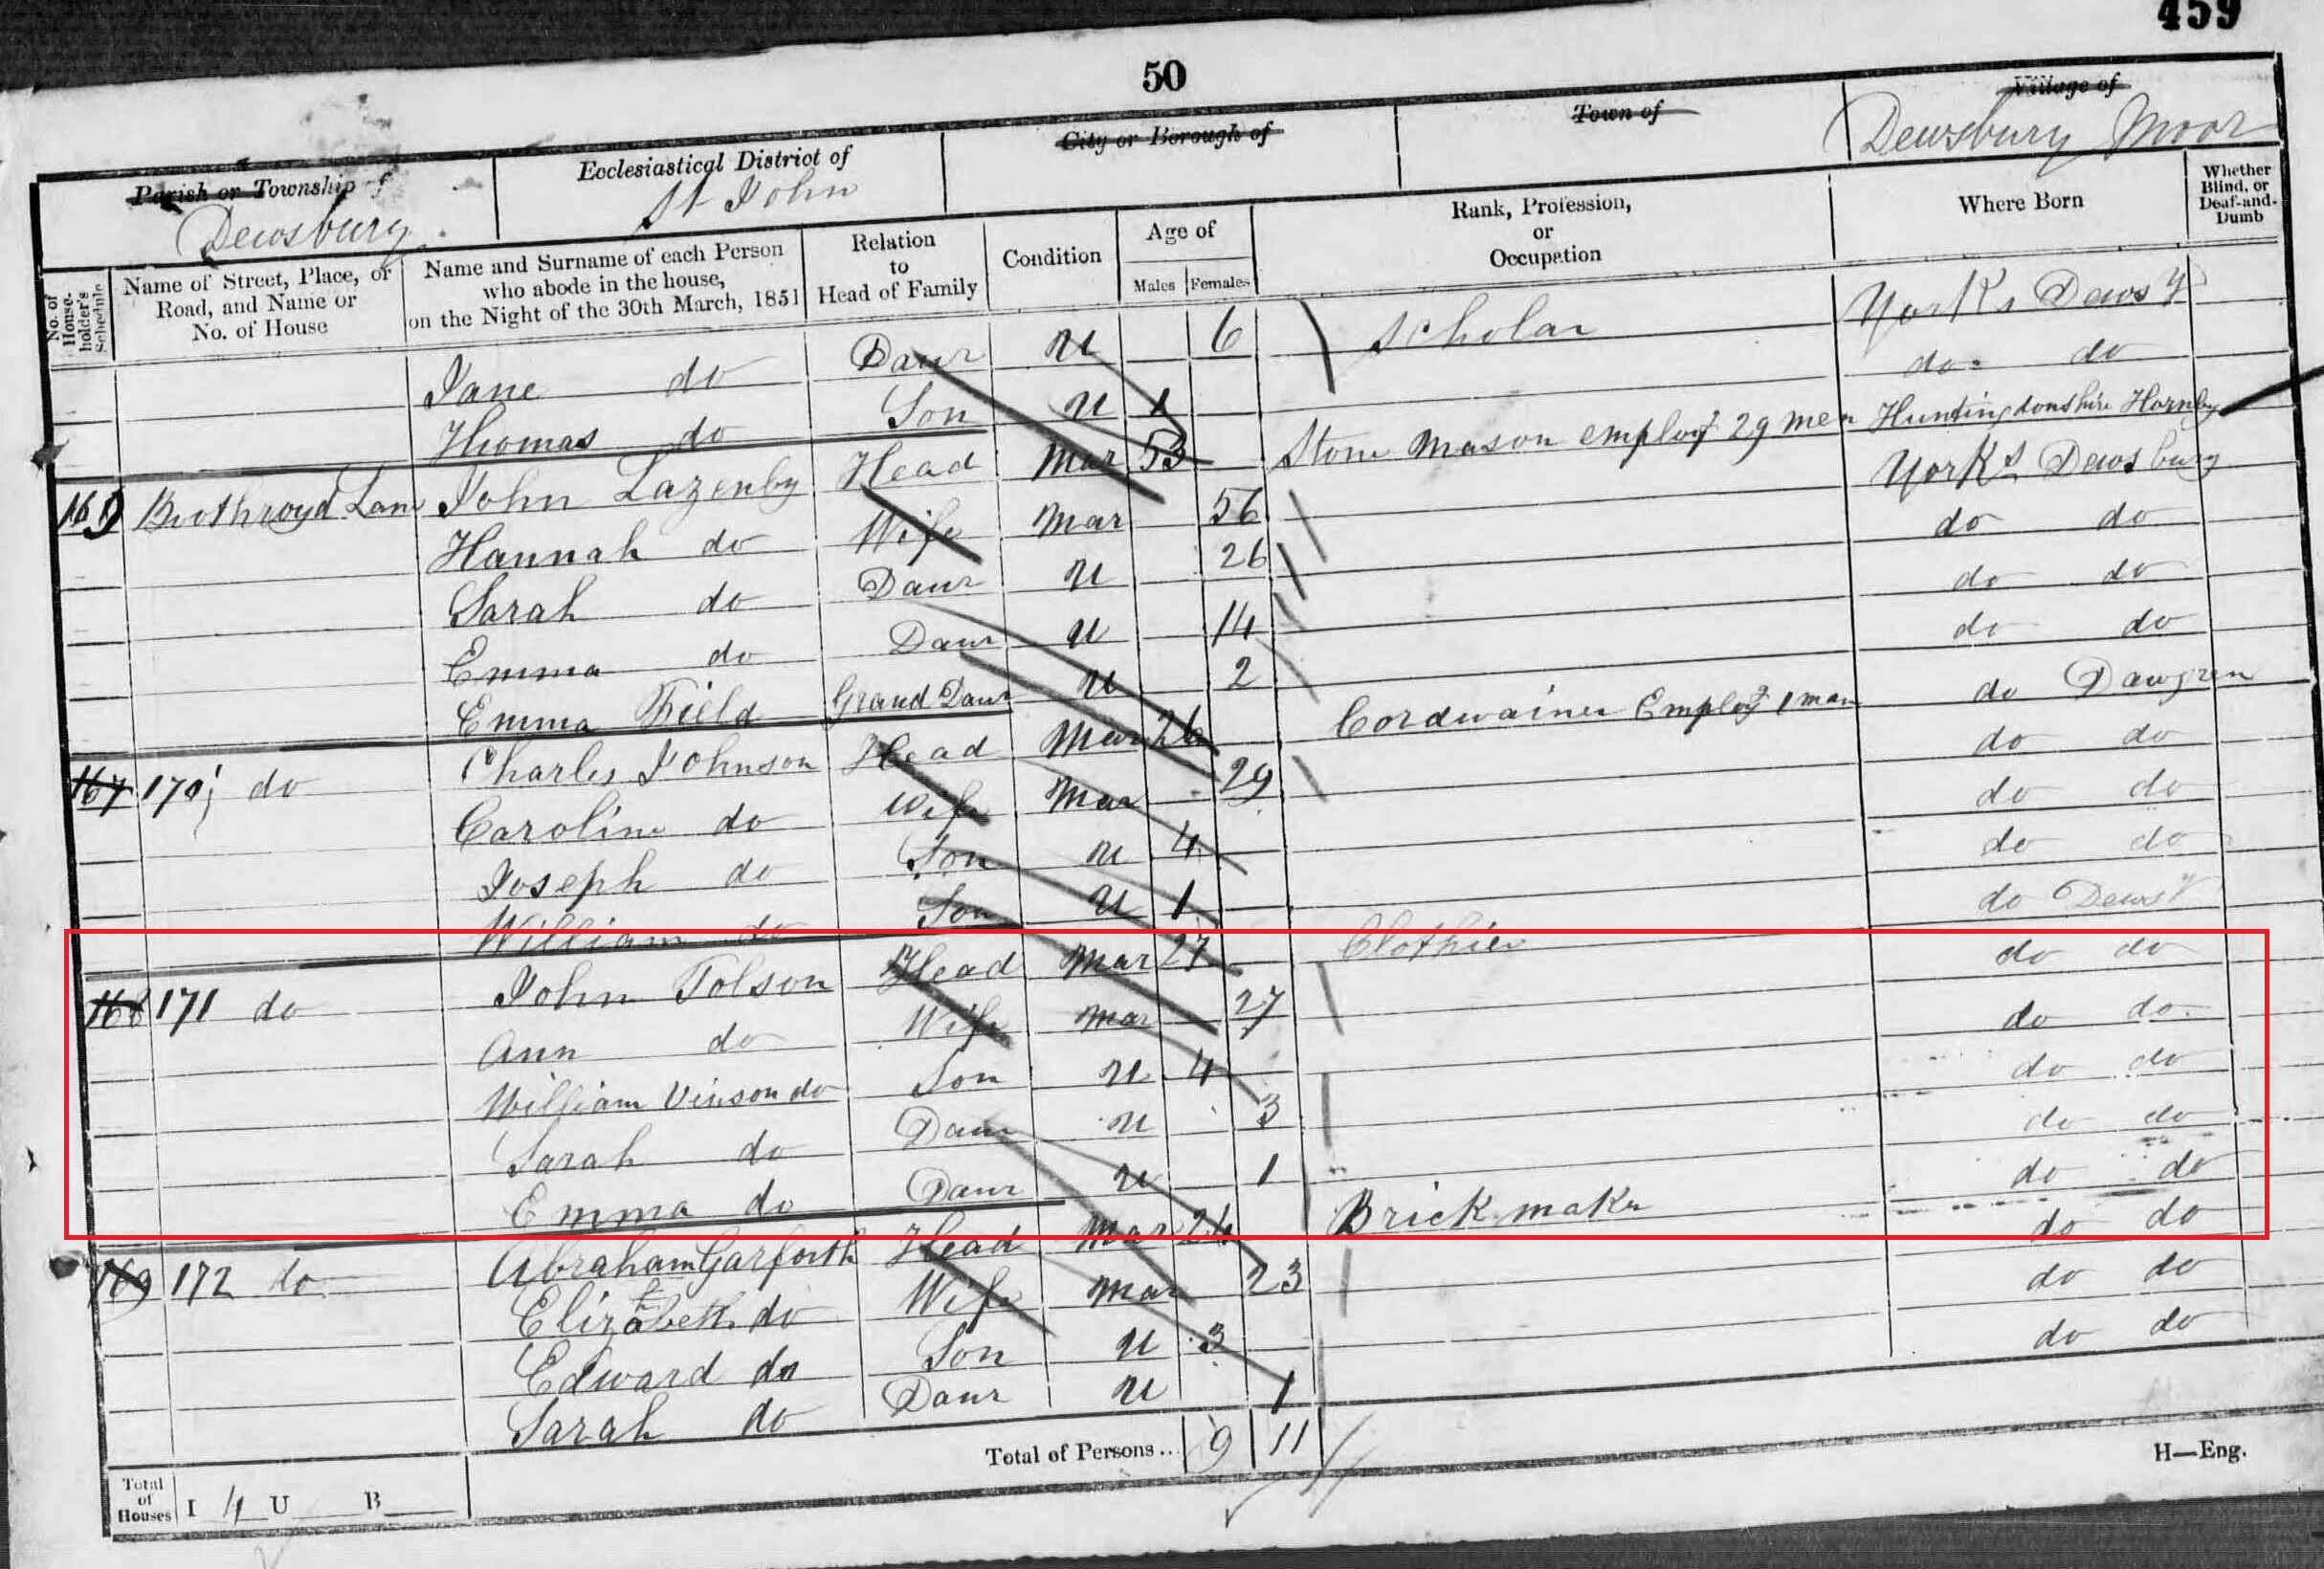 459
50
Parish or Township of
Dewsbury
Ecclesiastical District of
St John
City or Borough of
Town of
Village of
Dewsbury Moor
No. of House-holder's Schedule
Name of Street, Place, or Road, and Name or No. of House
Name and Surname of each Person who abode in the house, on the Night of the 30th March, 1851
Relation to Head of Family
Condition
Age of
Males Females
Rank, Profession, or Occupation
Where Born
Whether Blind, or Deaf-and-Dumb
Jane do Daur U 6 Scholar Yorks Dewsy
Thomas do Son U 1 do do
169 Boothroyd Lane John Lazenby Head Mar 53 Stone Mason employg 29 men Huntingdonshire Hornby
Hannah do Wife Mar 56 Yorks Dewsbury
Sarah do Daur U 26 do do
Emma do Daur U 14 do do
Emma Field Grand Daur U 2 do do
167 170 do Charles Johnson Head Mar 26 Cordwainer Employg 1 man do Dawgren
Caroline do Wife Mar 29 do do
Joseph do Son U 4 do do
William do Son U 1 do do
168 171 do John Tolson Head Mar 27 Clothier do Dewsy
Ann do Wife Mar 27 do do
William Vinson do Son U 4 do do
Sarah do Daur U 3 do do
Emma do Daur U 1 do do
169 172 do Abraham Garforth Head Mar 24 Brick maker do do
Elizabeth do Wife Mar 23 do do
Edward do Son U 3 do do
Sarah do Daur U 1 do do
Total of Persons... 9 11
Total of Houses I 4 U B
H—Eng.